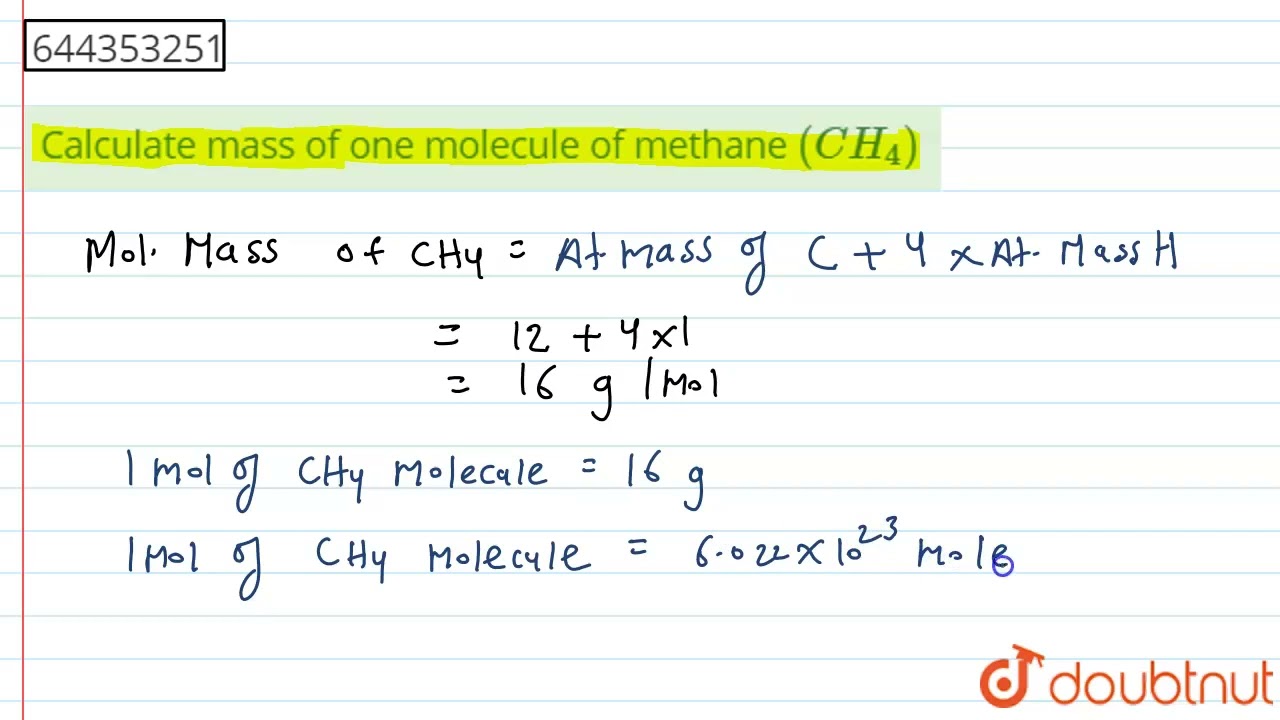 644353251
Calculate mass of one molecule of methane (CH₄)
Mol. Mass of CH4 = At mass of C + 4 × At. Mass H
= 12 + 4×1
= 16 g / Mol
1 mol of CH4 Molecule = 16 g
1 Mol of CH4 Molecule = 6.022 × 10²³ Mole
doubtnut